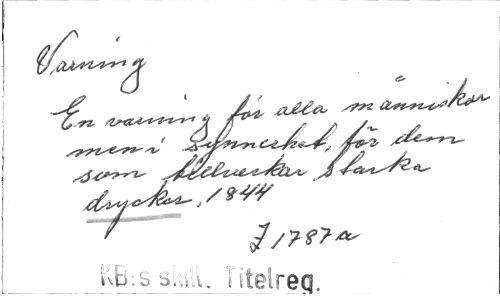 Varning
En varning för alla människor
men i synnerhet, för dem
som tillverkar starka
drycker, 1844
J 1787 a
KB:s skill. Titelreg.